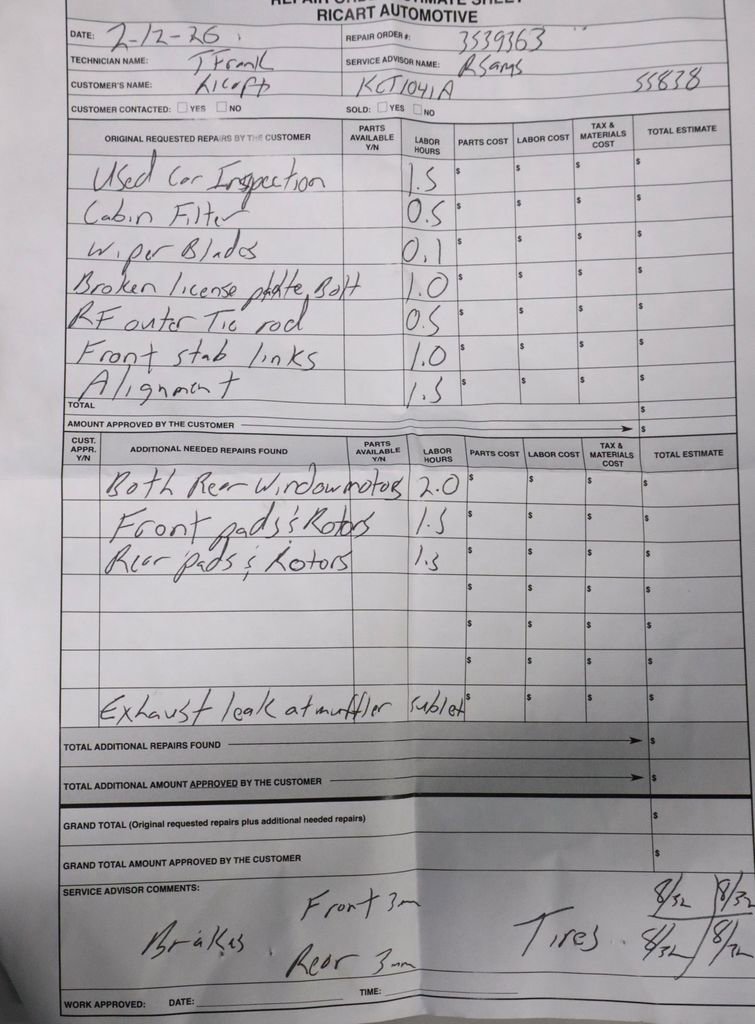 RICART AUTOMOTIVE
DATE: 2-12-26
REPAIR ORDER #: 3539363
TECHNICIAN NAME: T Frank
SERVICE ADVISOR NAME: RSams
CUSTOMER'S NAME: Ricart KCT1041A 55838
CUSTOMER CONTACTED: YES NO SOLD: YES NO
ORIGINAL REQUESTED REPAIRS BY THE CUSTOMER PARTS AVAILABLE Y/N LABOR HOURS PARTS COST LABOR COST TAX & MATERIALS COST TOTAL ESTIMATE
Used Car Inspection 1.5 $ $ $ $
Cabin Filter 0.5 $ $ $ $
Wiper Blades 0.1 $ $ $ $
Broken license plate Bolt 1.0 $ $ $ $
RF outer Tie rod 0.5 $ $ $ $
Front stab links 1.0 $ $ $ $
Alignment 1.5 $ $ $ $
TOTAL $
AMOUNT APPROVED BY THE CUSTOMER $
CUST. APPR. Y/N ADDITIONAL NEEDED REPAIRS FOUND PARTS AVAILABLE Y/N LABOR HOURS PARTS COST LABOR COST TAX & MATERIALS COST TOTAL ESTIMATE
Both Rear Window motors 2.0 $ $ $ $
Front pads & Rotors 1.5 $ $ $ $
Rear pads & Rotors 1.5 $ $ $ $
$ $ $ $
$ $ $ $
$ $ $ $
Exhaust leak at muffler sublet $ $ $ $
TOTAL ADDITIONAL REPAIRS FOUND $
TOTAL ADDITIONAL AMOUNT APPROVED BY THE CUSTOMER $
GRAND TOTAL (Original requested repairs plus additional needed repairs) $
GRAND TOTAL AMOUNT APPROVED BY THE CUSTOMER $
SERVICE ADVISOR COMMENTS:
Brakes Front 3m
Rear 3mm
Tires 8/32 8/32
8/32 8/32
WORK APPROVED: DATE: TIME: